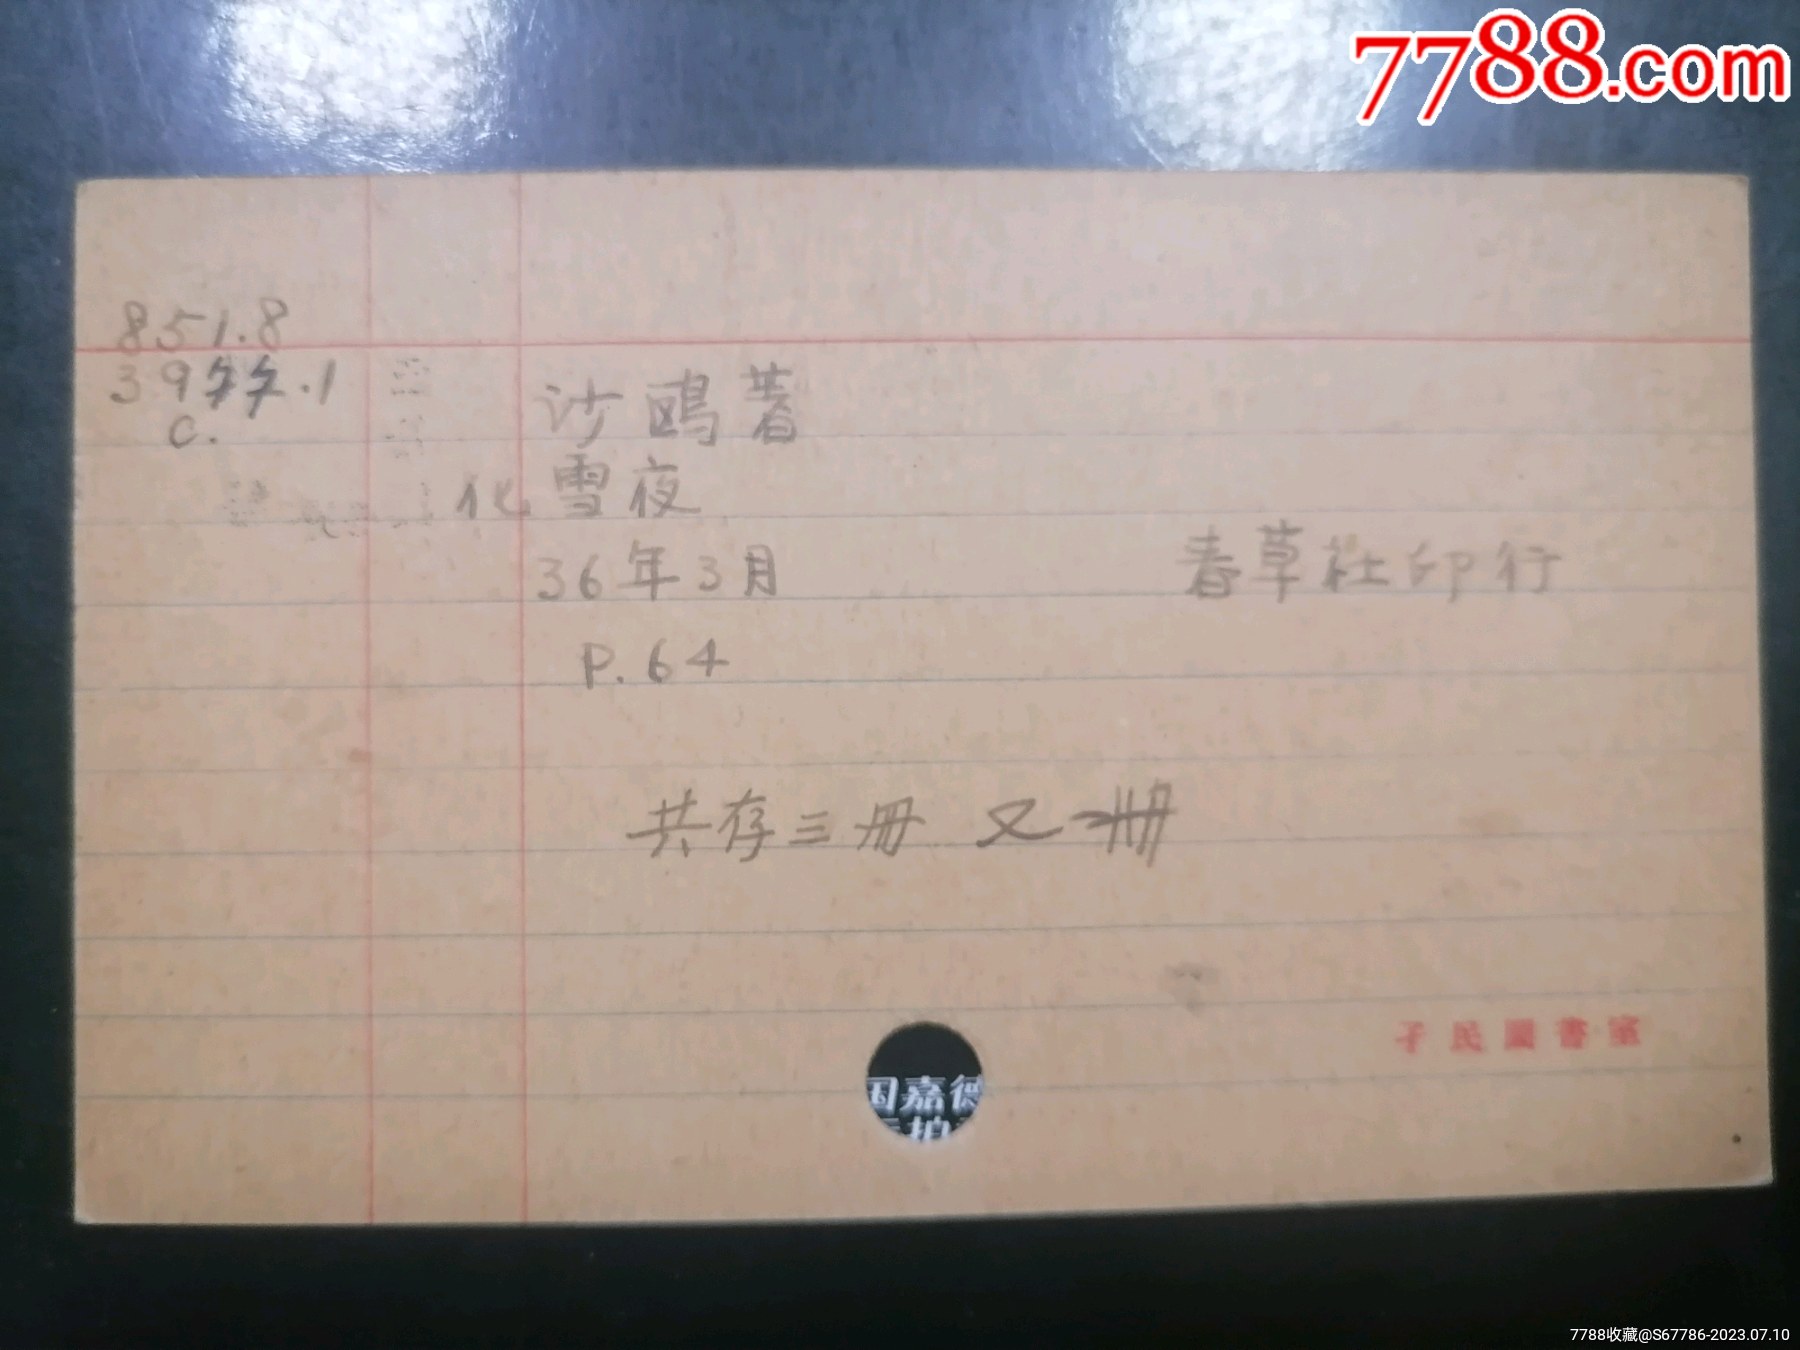 7788.com
851.8
3977.1
C.
沙鸥著
化雪夜
36年3月
春草社印行
P.64
共存三册 又一册
孑民圖書室
国嘉德
拍
7788收藏@S67786-2023.07.10